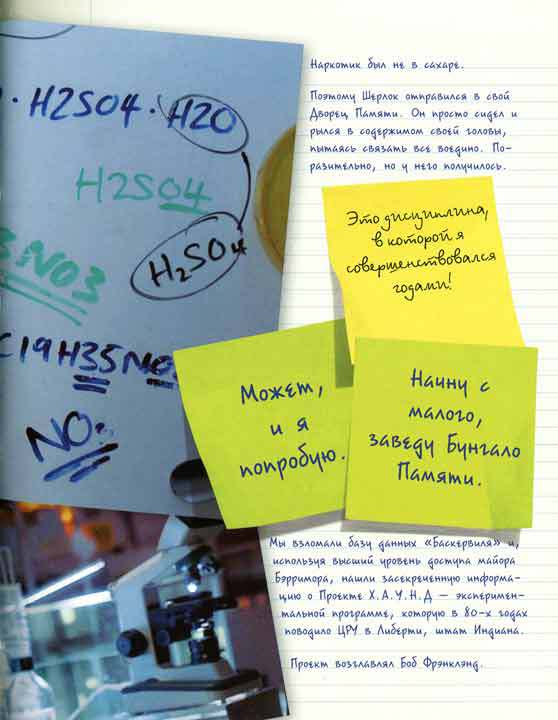 · H2SO4 · H2O
H2SO4
H₂SO4
NO3
C19H35NO
NO
Наркотик был не в сахаре.
Поэтому Шерлок отправился в свой
Дворец Памяти. Он просто сидел и
рылся в содержимом своей головы,
пытаясь связать все воедино. По-
разительно, но у него получилось.
Это дисциплина,
в которой я
совершенствовался
годами!
Может,
и я
попробую.
Начну с
малого,
заведу Бунгало
Памяти.
Мы взломали базу данных «Баскервиля» и,
используя высший уровень доступа майора
Бэрримора, нашли засекреченную информа-
цию о Проекте Х.А.У.Н.Д — эксперимен-
тальной программе, которую в 80-х годах
поводило ЦРУ в Либерти, штат Индиана.
Проект возглавлял Боб Фрэнклэнд.